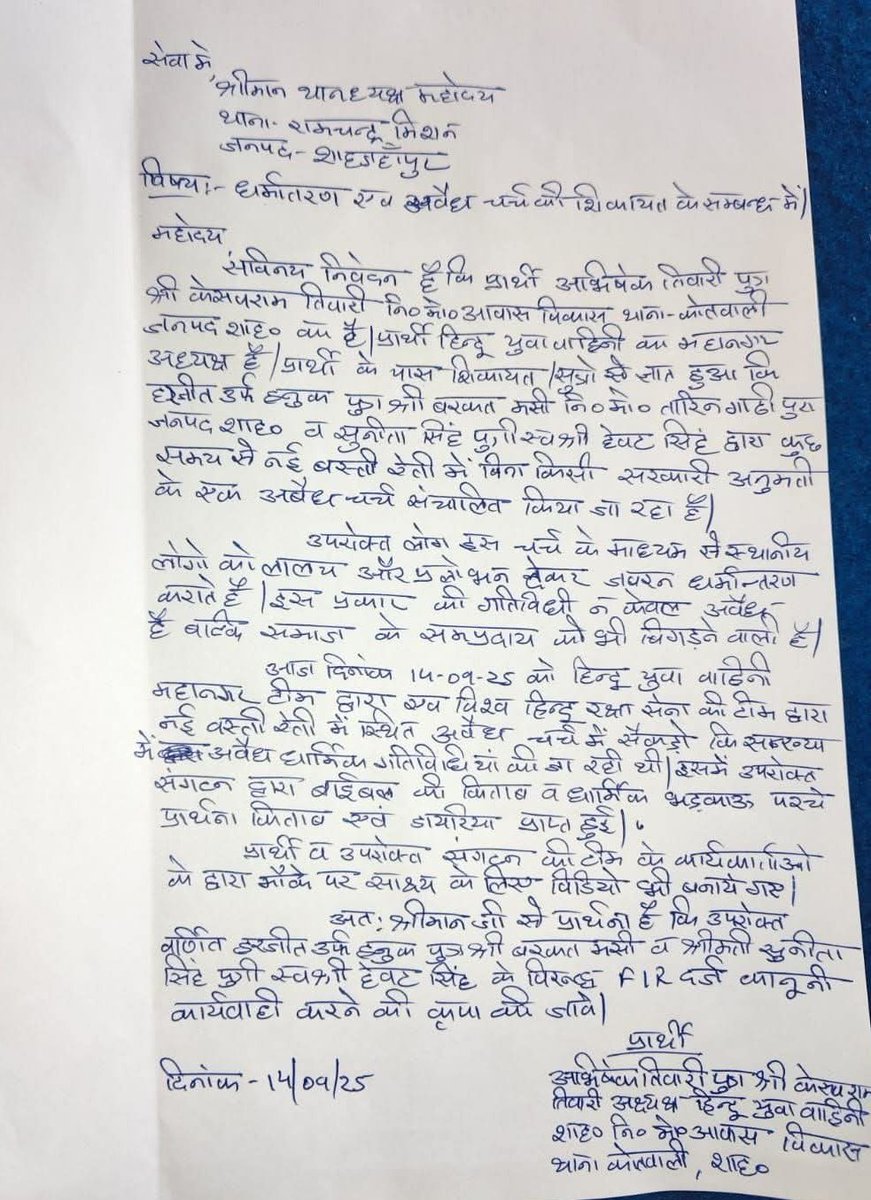 सेवा मे,
श्रीमान थानध्यक्ष महोदय
थाना- रामचन्द्र मिशन
जनपद- शाहजहाँपुर
विषय:- धर्मातरण एव अवैध चर्च की शिकायत के सम्बन्ध में|
महोदय
सविनय निवेदन है कि प्रार्थी अभिषेक तिवारी पुत्र
श्री केसपराम तिवारी नि० मो० आवास विकास थाना- कोतवाली
जनपद शाह० का है| प्रार्थी हिन्दू युवा वाहिनी का महानगर
अध्यक्ष है| प्रार्थी के पास शिकायत/सूत्रो से ज्ञात हुआ कि
उर्फ हनुक पुत्र श्री बरकत मसी नि० मो० तारिन गाढी पुरा
जनपद शाह० व सुनीता सिंह पुत्री स्व श्री हेवट सिंह द्वारा कुछ
समय से नई बस्ती रेती में बिना किसी सरकारी अनुमती
के एक अबैध चर्च संचालित किया जा रहा है|
उपरोक्त लोग इस चर्च के माध्यम से स्थानीय
लोगो को लालच और प्रलोभन देकर जबरन धर्मान्तरण
कराते है| इस प्रकार की गतिविधी न केवल अवैध
है बल्कि समाज के सम्प्रदाय को भी बिगड़ने वाली है|
आज दिनांक 14-09-25 को हिन्दू युवा वाहिनी
महानगर टीम द्वारा एव विश्व हिन्दू रक्षा सेना की टीम द्वारा
नई वस्ती रेती में स्थित अवैध चर्च में सैकड़ो कि सन्ख्या
में अवैध धार्मिक गतिविधियां की जा रही थी| इसमें उपरोक्त
संगटन द्वारा बाईबल की किताब व धार्मिक भड़काऊ परचे
प्रार्थना किताब एवं डायरिया प्राप्त हुई|
प्रार्थी व उपरोक्त संगटन की टीम के कार्यकार्ताओ
के द्वारा मौके पर साक्ष्य के लिए विडियो भी बनाये गए|
अत: श्रीमान जी से प्रार्थना है कि उपरोक्त
वर्णित हरजीत उर्फ हनुक पुत्र श्री बरकत मसी व श्रीमती सुनीता
सिंह पुत्री स्व श्री हेवट सिंह के विरुद्ध FIR दर्ज कानूनी
कार्यवाही करने की कृपा की जावे|
प्रार्थी
दिनांक - 14/09/25
अभिषेक तिवारी पुत्र श्री केसप राम
तिवारी अध्यक्ष हिन्दू युवा वाहिनी
शाह० नि० मो० आवास विकास
थाना कोतवाली, शाह०